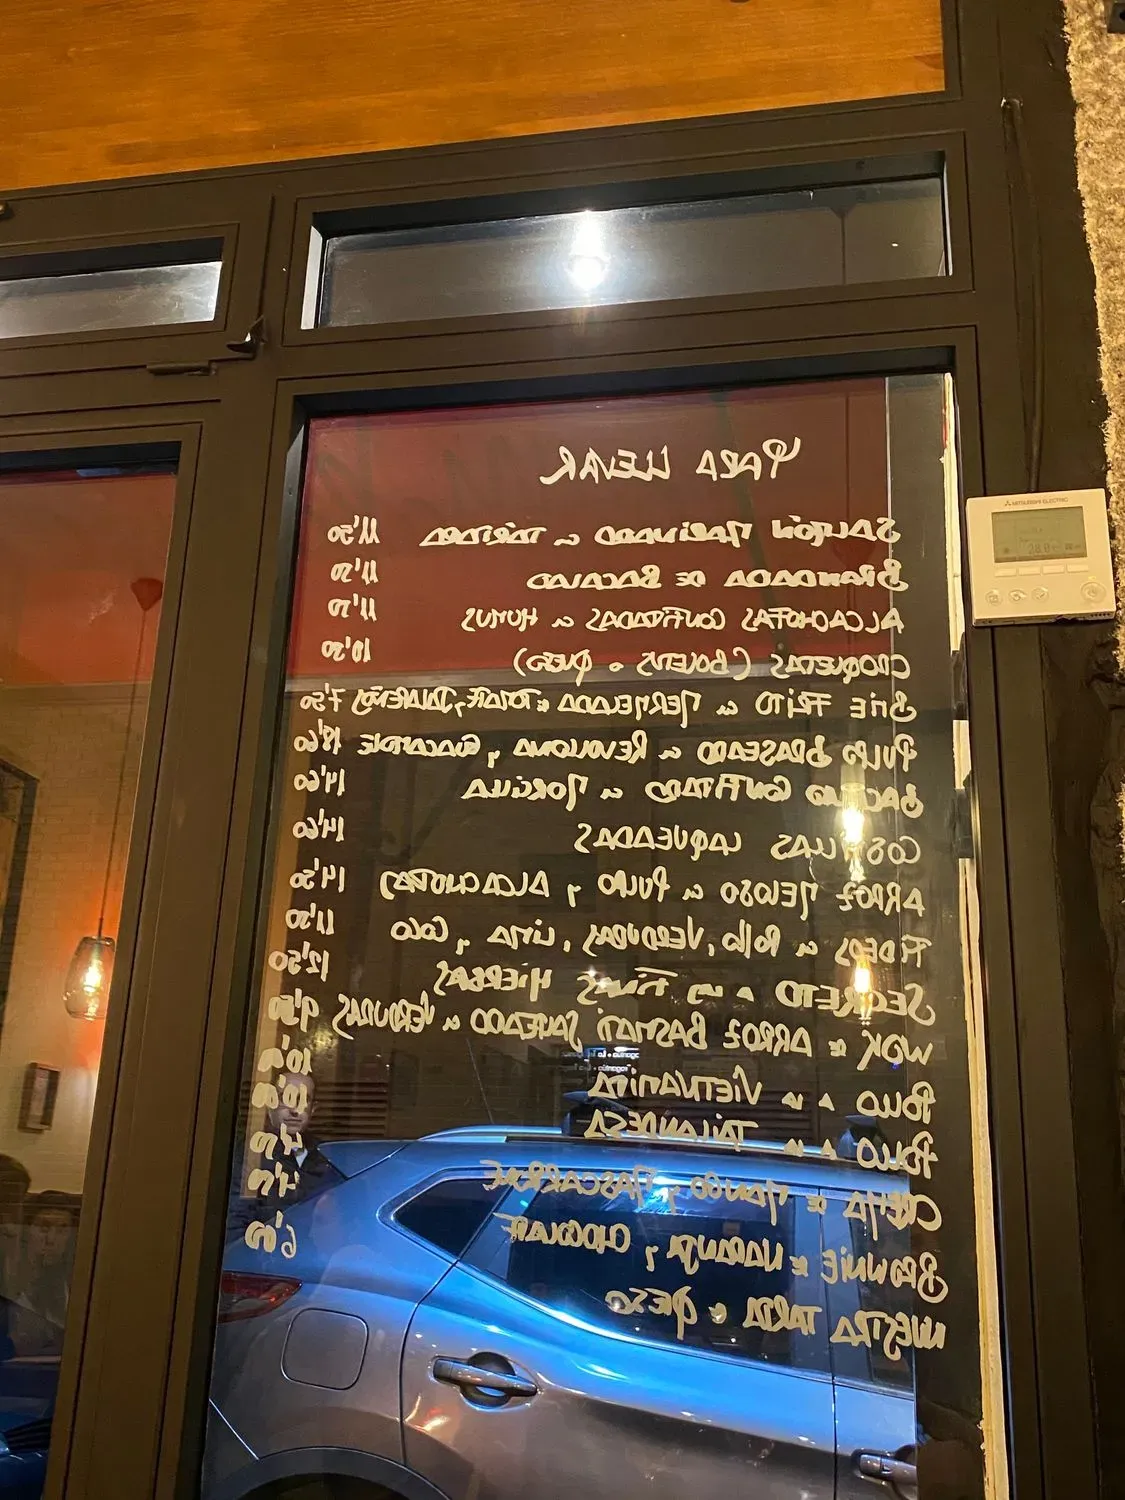 PARA LLEVAR
SALMÓN MARINADO en TÁRTARA 11'50
BRANDADA DE BACALAO 11'50
ALCACHOFAS CONFITADAS en HUMUS 11'50
CROQUETAS (BOLETUS o QUESO) 10'50
BRIE FRITO en MERMELADA de TOMATE y JALAPEÑOS 7'50
PULPO BRASEADO en REVOLCONA y GUACAMOLE 18'60
BACALAO CONFITADO en MORCILLA 14'60
COSTILLAS LAQUEADAS 14'60
ARROZ MELOSO en PULPO y ALCACHOFAS 14'50
FIDEOS en POLLO, VERDURAS, LIMA, y COCO 11'50
SECRETO A LAS FINAS HIERBAS 12'50
WOK de ARROZ BASMATI SALTEADO en VERDURAS 9'50
POLLO A LA VIETNAMITA
POLLO A LA TAILANDESA
CREMA DE MANGO y MASCARPONE
BROWNIE DE NARANJA y CHOCOLATE
NUESTRA TARTA de QUESO 6'00
MITSUBISHI ELECTRIC
28.0